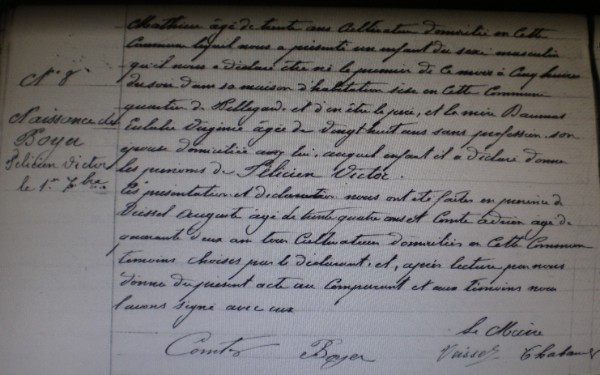 Mathieu âgé de trente ans Cultivateur domicilié en Cette
Commune lequel nous a présenté un enfant du sexe masculin
qu'il nous a déclaré être né le premier de ce mois à Cinq heures
du soir dans sa maison d'habitation sise en Cette Commune
quartier de Bellegarde et d'en être le père, et la mère Daumas
Eulalie Virginie âgée de vingt huit ans sans profession son
épouse domiciliée avec lui, auquel enfant il a déclaré donner
les prénoms de Félicien Victor.
Les présentation et déclaration nous ont été faites en présence de
Veissel Auguste âgé de trente quatre ans et Comte Adrien âgé de
quarante deux ans tous Cultivateurs domiciliés en Cette Commune
témoins choisis par le déclarant, et, après lecture par nous
donnée du présent acte au Comparant et aux témoins nous
l'avons signé avec eux
N° 8
Naissance de
Boyer
Félicien Victor
le 1er 7bre
Le Maire
Comte Boyer